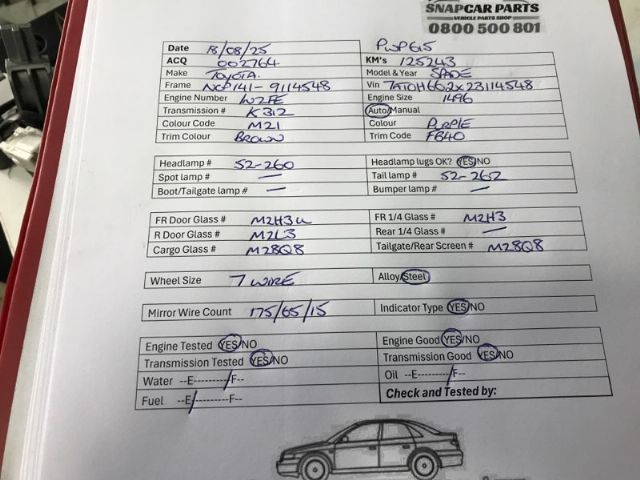 SNAPCAR PARTS
VEHICLE PARTS SHOP
0800 500 801
Date 18/08/25 PWP615
ACQ 002764 KM's 125243
Make TOYOTA. Model & Year SPADE
Frame NCP141-9114548 Vin 7AT0H66J2X23114548
Engine Number W2FE Engine Size 1496
Transmission # K312 Auto/Manual
Colour Code M21 Colour PURPLE
Trim Colour BROWN Trim Code FB40
Headlamp # 52-260 Headlamp lugs OK? YES/NO
Spot lamp # — Tail lamp # 52-262
Boot/Tailgate lamp # — Bumper lamp # —
FR Door Glass # M2H3U FR 1/4 Glass # M2H3
R Door Glass # M2L3 Rear 1/4 Glass # —
Cargo Glass # M28Q8 Tailgate/Rear Screen # M28Q8
Wheel Size 7 WIRE Alloy/Steel
Mirror Wire Count 175/65/15 Indicator Type YES/NO
Engine Tested YES/NO Engine Good YES/NO
Transmission Tested YES/NO Transmission Good YES/NO
Water --E----------/F-- Oil --E----------F--
Fuel --E/----------F-- Check and Tested by: